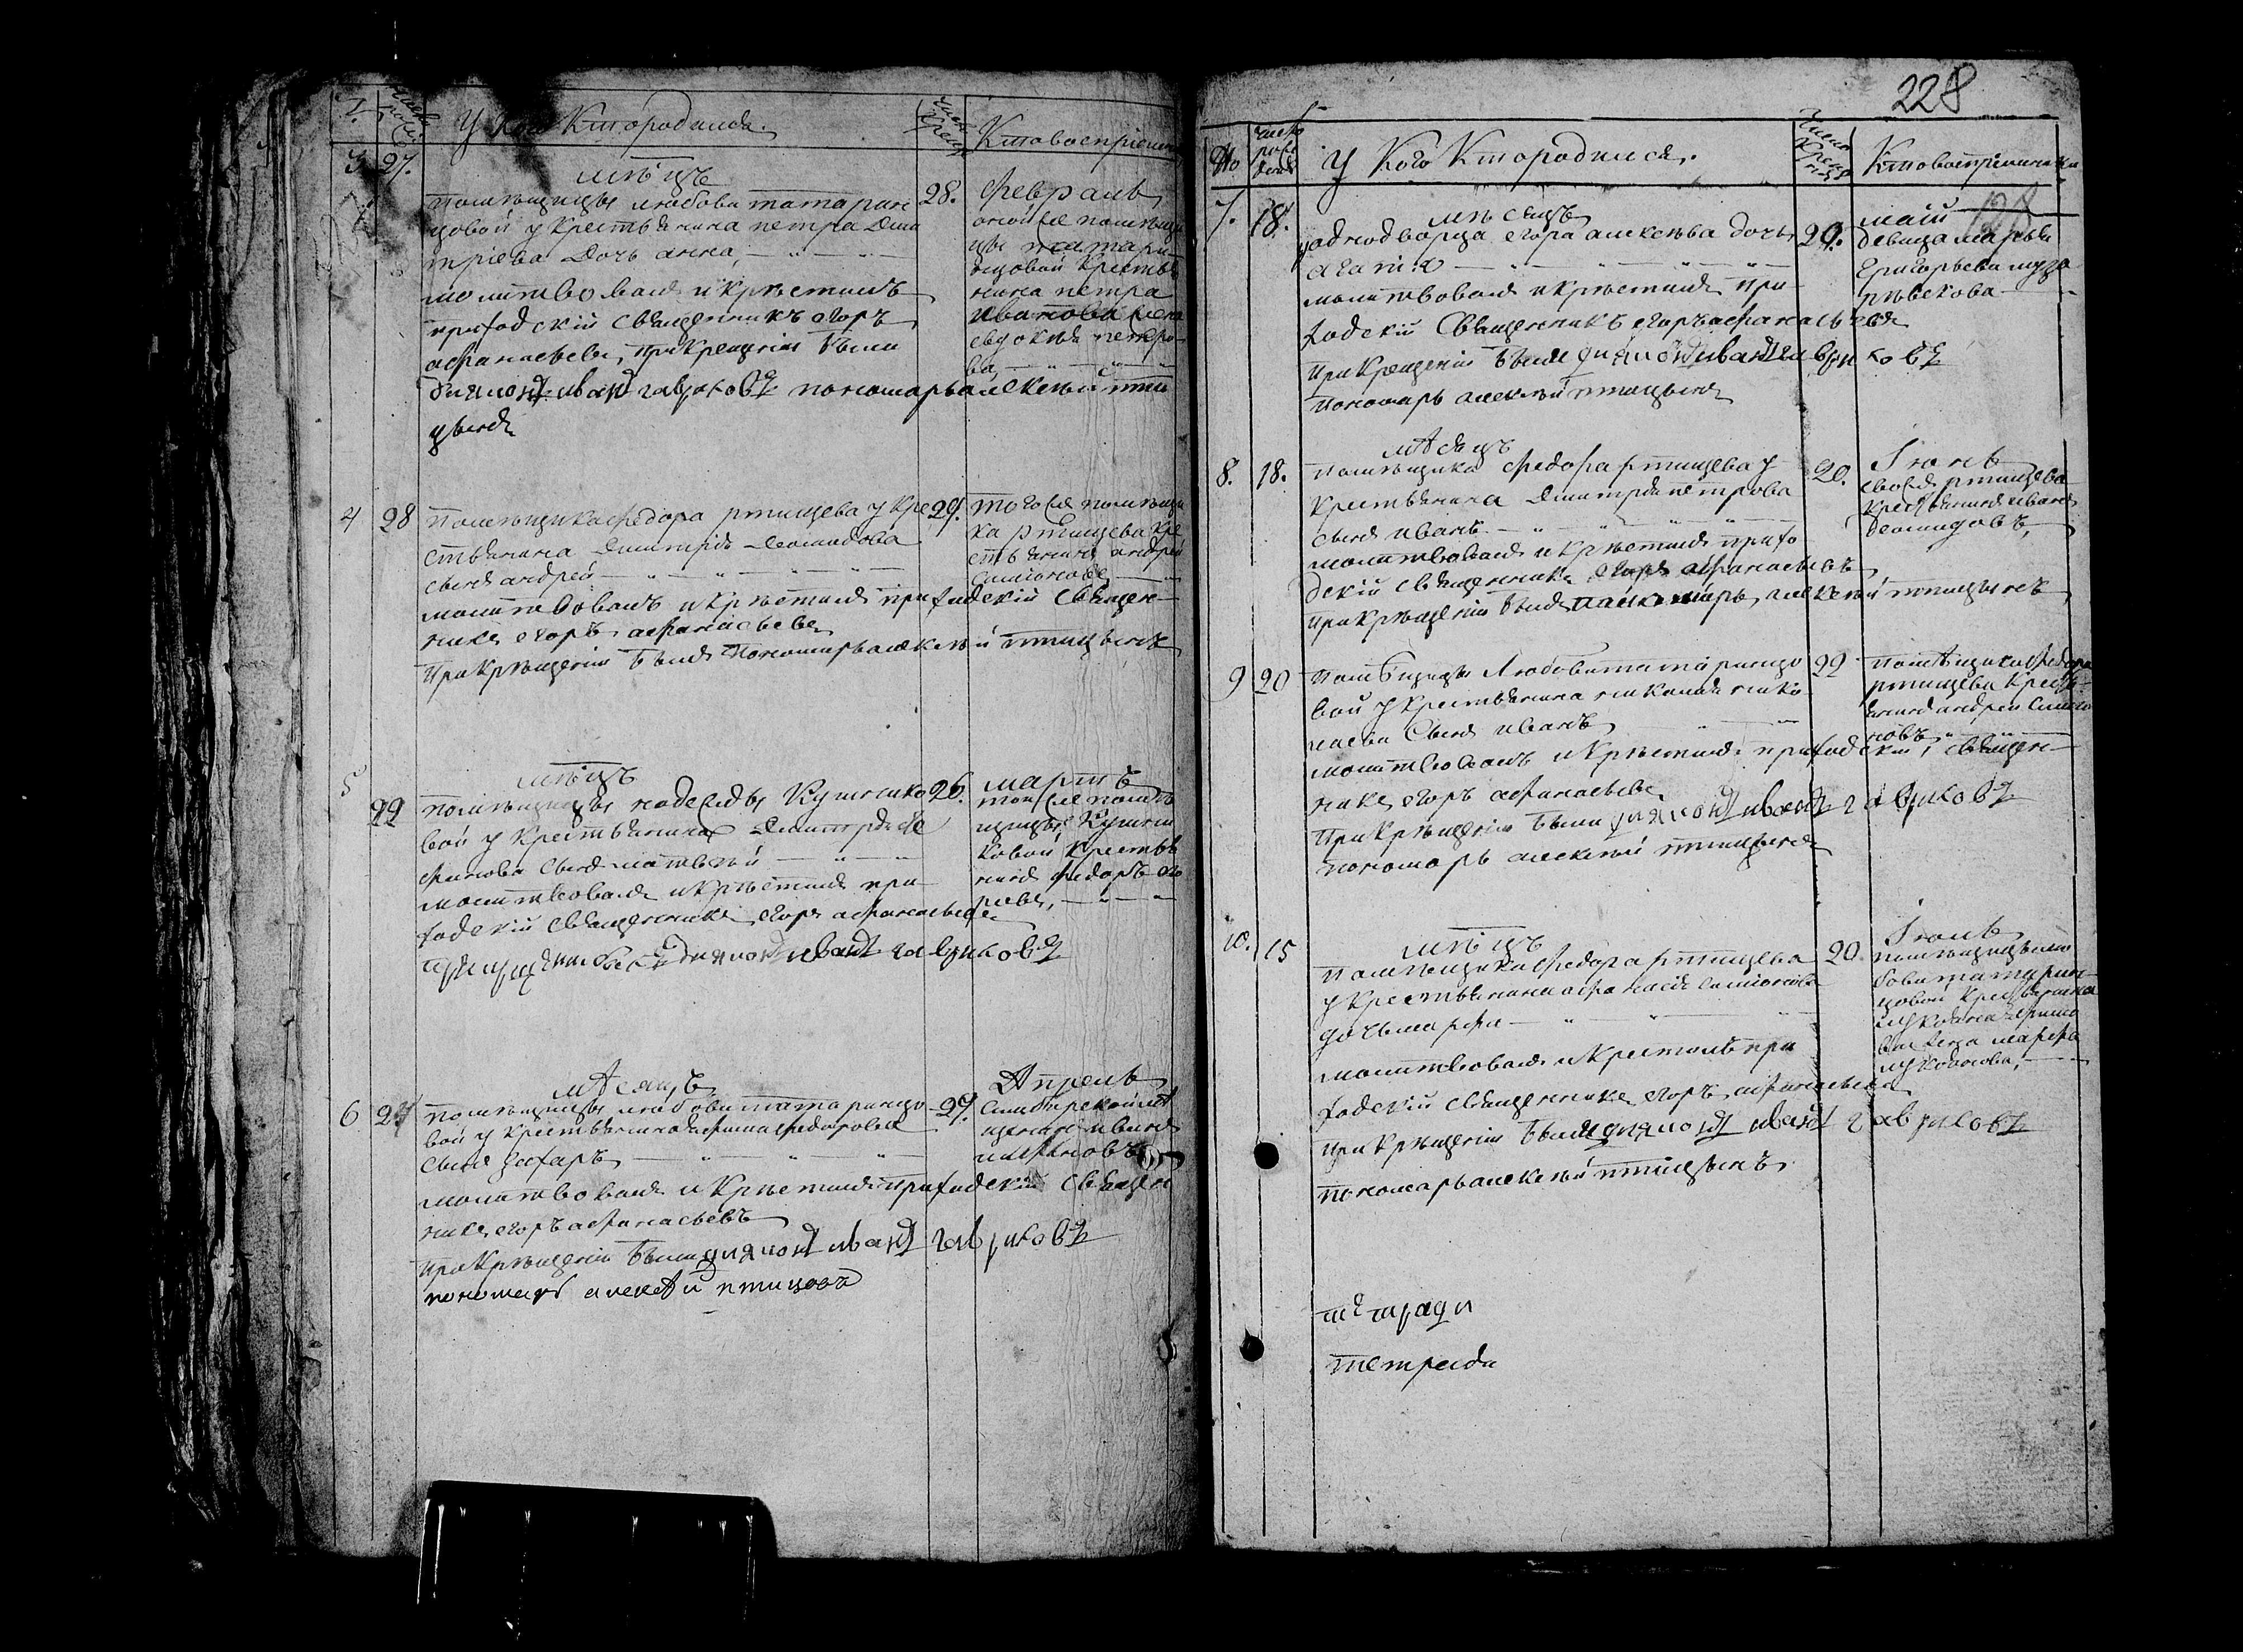 У Кого Кто родился.
Кто восприемн
3. 27.
мѣцъ
28.
февраль
помѣщицы любови татарин
цовой у Крестьянина петра дми
тріева дочь анна,
молитвовалъ и крѣстилъ
приходскій Священникъ егоръ
афанасьевъ, при крещеніи были
дияконъ иванъ гавриловъ пономарь алексѣй пти
цынъ
оной же помѣщи
цы татари
нцовой Крестья
нина петра
иванова жена
евдокія петро
ва,
4 28
помѣщика федора ртищева у Кре
29.
стьянина Дмитрія Демидова
сынъ андрей
молитвовалъ и крѣстилъ приходскій Священ
никъ егоръ афанасьевъ
при крѣщеніи былъ пономарь алексѣй птицынъ
того же помѣщи
ка ртищева Кре
стьянинъ андрей
Симіоновъ
5
22
мѣцъ
26.
мартъ
помѣщицы надежды Кушнико
вой у Крестьянина Дмитрія
сынъ матвѣй
молитвовалъ и крѣстилъ при
ходскій Священникъ егоръ афанасьевъ
при крещеніи былъ дияконъ иванъ гавриловъ
той же помѣ
щицы Кушни
ковой Крестья
нинъ федоръ
6 27
мѣсяцъ
29.
Апрель
помѣщицы любови татаринцо
вой у Крестьянина федорова
сынъ захаръ
молитвовалъ и крѣстилъ приходскій Священ
никъ егоръ афанасьевъ
при крѣщеніи были дияконъ иванъ гавриловъ
пономарь алексѣй птицовъ
228
№
У Кого Кто родился.
Кто восприемника
7. 18.
мѣсяцъ
20.
май
128
у однодворца егора алексѣева дочь
агапія
молитвовалъ и крѣстилъ при
ходскій Священникъ егоръ афанасьевъ
при крещеніи были дияконъ иванъ гавриловъ
пономарь алексѣй птицынъ
девица марья
Григорьева
8. 18.
мѣсяцъ
20.
Июнь
помѣщика федора ртищева у
Крестьянина Дмитрія петрова
сынъ иванъ
молитвовалъ и крѣстилъ прихо
дскій Священникъ егоръ афанасьевъ
при крѣщеніи былъ пономарь алексѣй птицынъ
ртищева
крестьянинъ иванъ
демидовъ,
9 20
помѣщицы Любови татаринцо
22
вой у Крестьянина николая нико
лаева Сынъ иванъ
молитвовалъ и крѣстилъ приходскій Священ
никъ егоръ афанасьевъ
при крѣщеніи были дияконъ иванъ гавриловъ
пономарь алексѣй птицынъ
помѣщика федора
ртищева Кресть
янинъ андрей Симио
новъ
10. 15
мѣцъ
20.
Июль
помѣщика федора ртищева
у Крестьянина афанасія Симіонова
дочь марфа
молитвовалъ и Крестилъ при
ходскій Священникъ егоръ афанасьевъ
при крѣщеніи были дияконъ иванъ гавриловъ
пономарь алексѣй птицынъ
помѣщицы лю
бови татарин
цовой
жена марфа
тетради
тетради